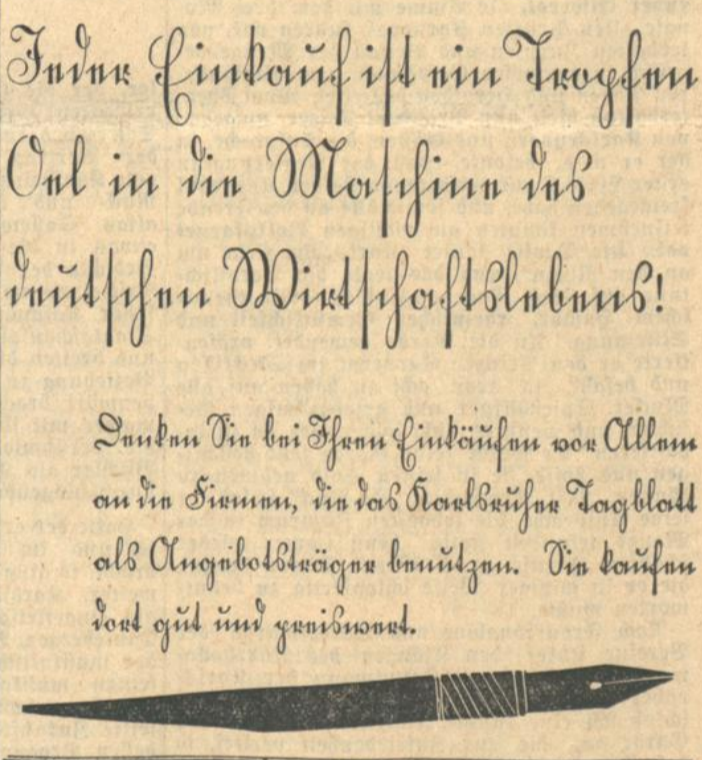 Jeder Einkauf ist ein Tropfen
Oel in die Maschine des
deutschen Wirtschaftslebens!
Denken Sie bei Ihren Einkäufen vor Allem
an die Firmen, die das Karlsruher Tagblatt
als Angebotsträger benutzen. Sie kaufen
dort gut und preiswert.